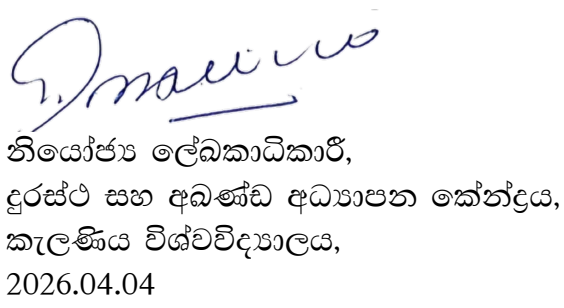 නියෝජ්‍ය ලේඛකාධිකාරී,
දුරස්ථ සහ අඛණ්ඩ අධ්‍යාපන කේන්ද්‍රය,
කැලණිය විශ්වවිද්‍යාලය,
2026.04.04